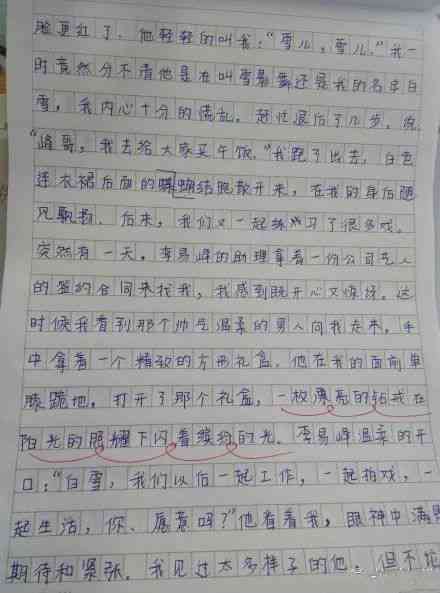 脸更红了，他轻轻的叫我："雪儿，雪儿。"我一
时竟然分不清他是在叫雪暴舞还是我的名字白
雪，我内心十分的慌乱，赶忙退后了几步，说
"峰哥，我去给大家买午饭。"我跑了出去，白色
连衣裙后面的蝴蝶结飘散开来，在我的身后随
风飘扬。后来，我们又一起练习了很多戏。
突然有一天，李易峰的助理拿着一份公司艺人
的签约合同来找我，我感到既开心又惊讶。这
时候我看到那个帅气温柔的男人向我走来，手
中拿着一个精致的方形礼盒，他在我的面前单
膝跪地，打开了那个礼盒，一枚漂亮的钻戒在
阳光的照耀下闪着缤纷的光。李易峰温柔的开
口："白雪，我们以后一起工作，一起拍戏，一
起生活，你，愿意吗？"他看着我，眼神中满是
期待和紧张。我见过太多样子的他，但不论